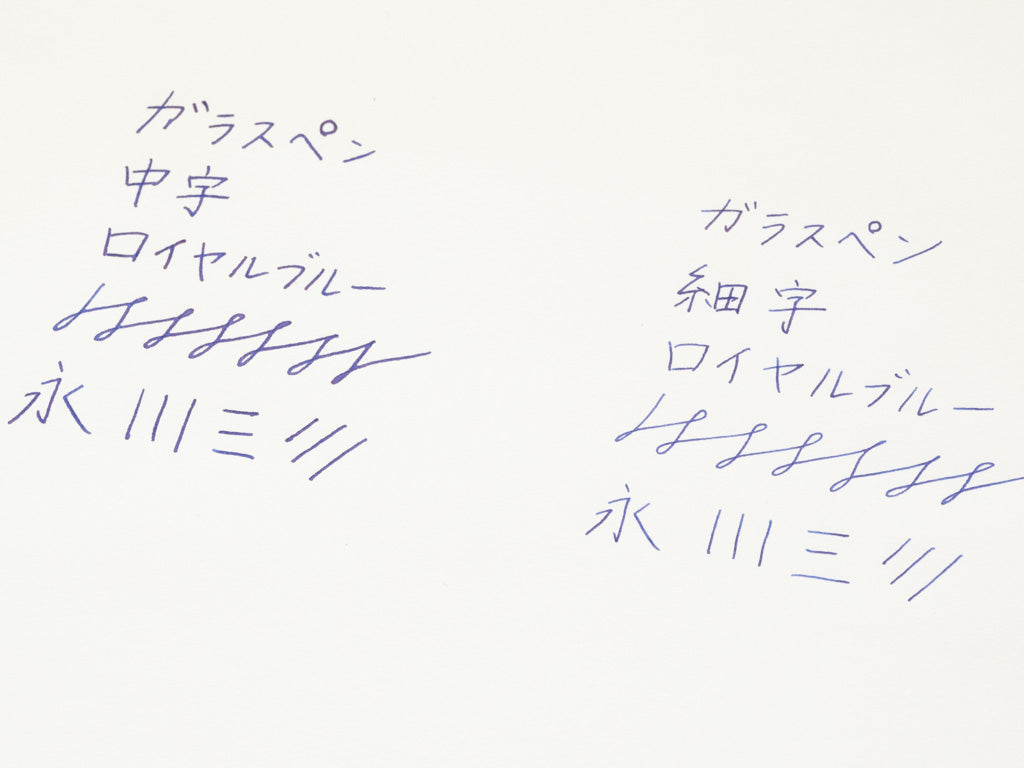 ガラスペン
中字
ロイヤルブルー
永 川 三
ガラスペン
細字
ロイヤルブルー
永 川 三